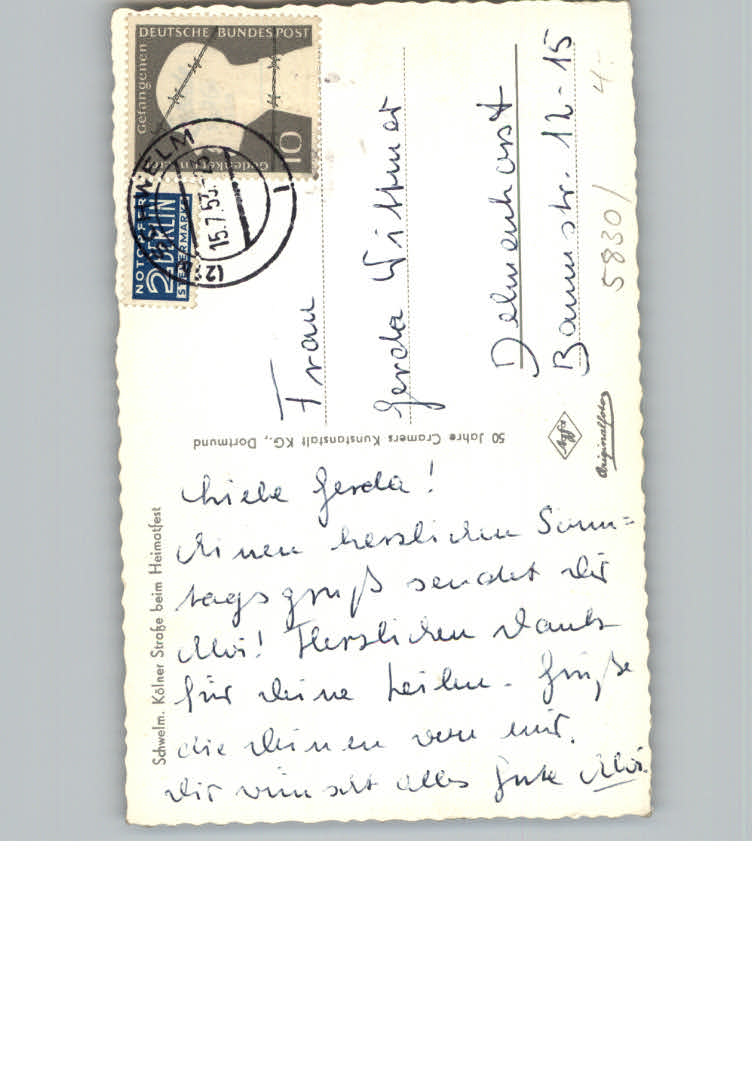 Schwelm. Kölner Straße beim Heimatfest
Liebe Gerda!
Einen herzlichen Sonn=
tagsgruß sendet dir
Herzlichen Dank
für deine Zeilen. Grüße
die Deinen von mir.
Dir wünscht alles Gute
50 Jahre Cramers Kunstanstalt KG., Dortmund
Agfa
Originalfoto
DEUTSCHE BUNDESPOST
Gefangenen
10
NOTOPFER
2 BERLIN
STEUERMARKE
SCHWELM
15.7.53
1
Frau
Gerda Wittmer
Delmenhorst
Baumstr. 12-15
5830/
4.-